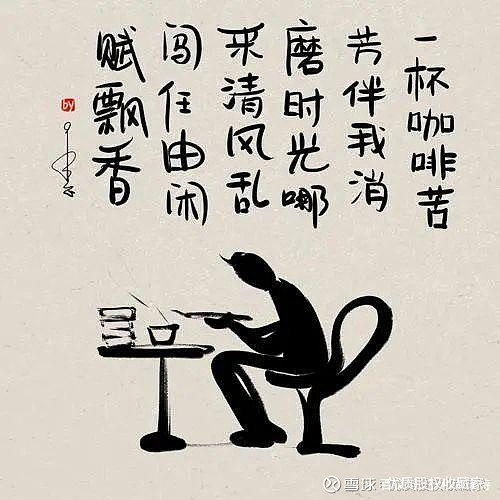 一杯咖啡苦
芳伴我消
磨时光哪
来清风乱
闯任由闲
赋飘香
by
雪球
优质股权收藏家